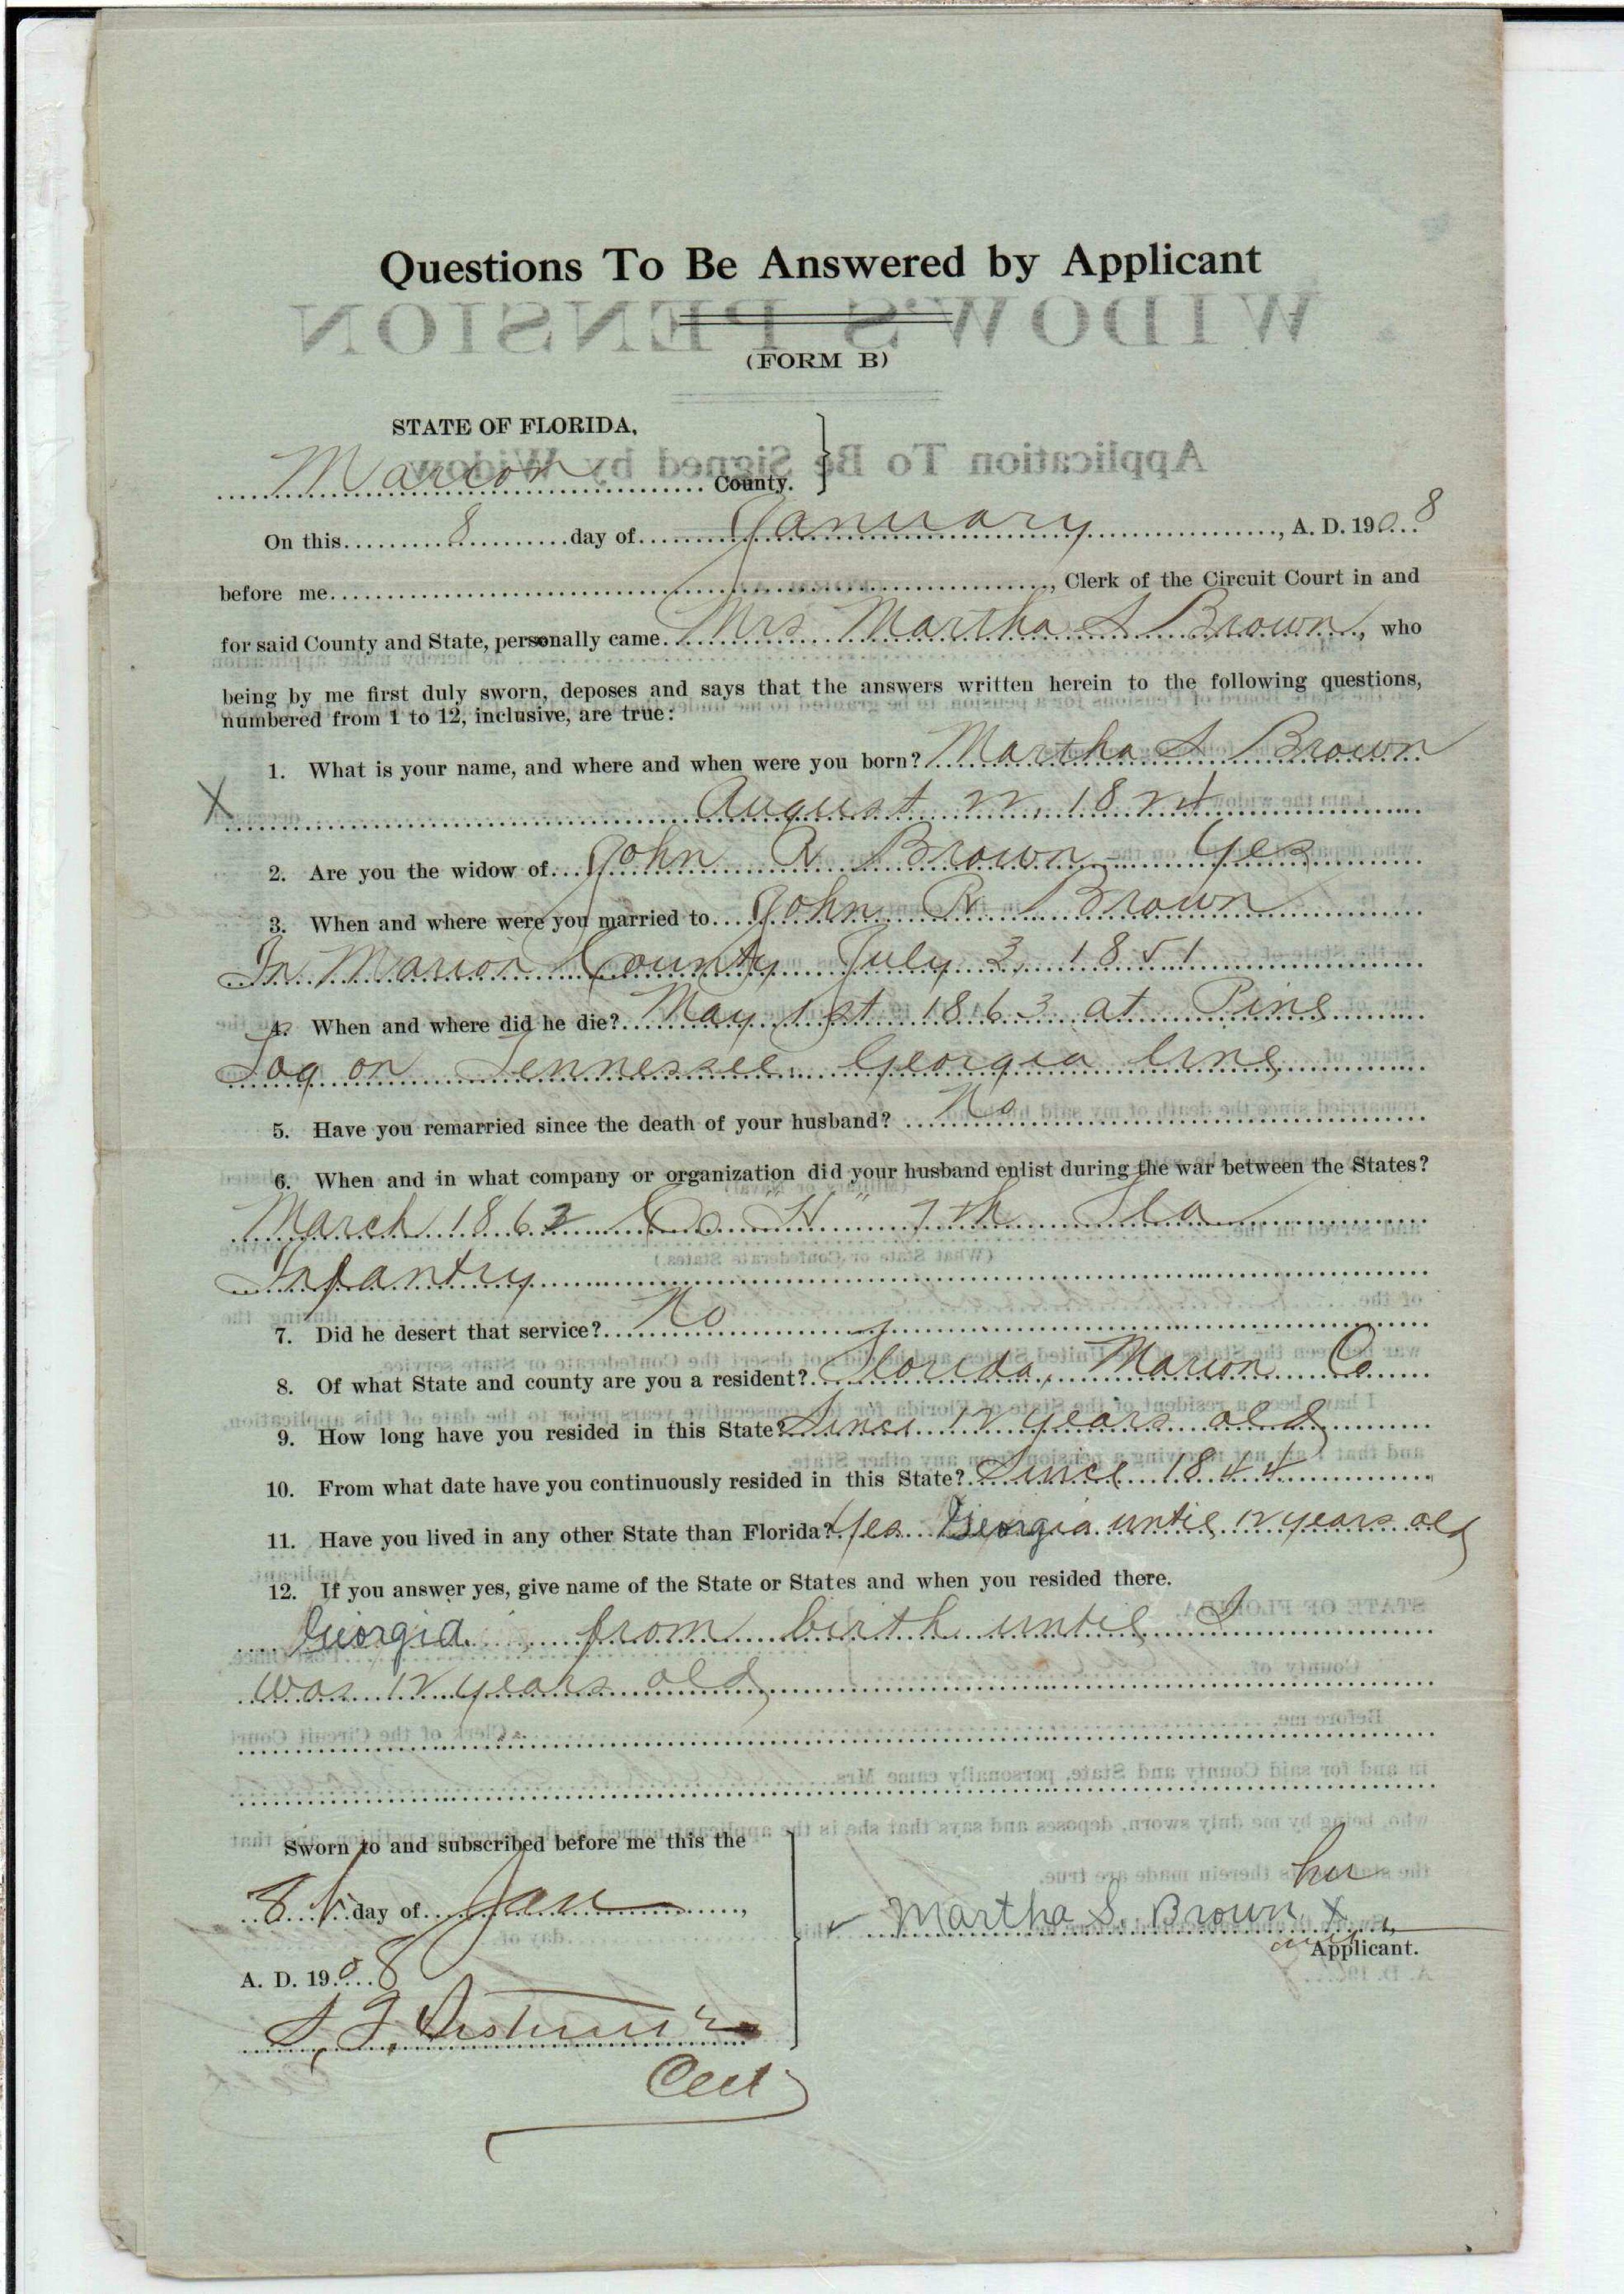 Questions To Be Answered by Applicant
(FORM B)
STATE OF FLORIDA,
Marion County.
On this 8 day of January, A. D. 1908
before me, Clerk of the Circuit Court in and
for said County and State, personally came Mrs Martha S Brown, who
being by me first duly sworn, deposes and says that the answers written herein to the following questions,
numbered from 1 to 12, inclusive, are true:
1. What is your name, and where and when were you born? Martha S Brown
X August 22, 1824
2. Are you the widow of John R Brown - Yes
3. When and where were you married to John R Brown
In Marion County July 3, 1851
4. When and where did he die? May 1st 1863 at Pine
Log on Tennessee Georgia line
5. Have you remarried since the death of your husband? No
6. When and in what company or organization did your husband enlist during the war between the States?
March 1862 Co "H" 7th Fla
Infantry
7. Did he desert that service? No
8. Of what State and county are you a resident? Florida, Marion Co
9. How long have you resided in this State? Since 12 years old
10. From what date have you continuously resided in this State? Since 1844
11. Have you lived in any other State than Florida? Yes Georgia until 12 years old
12. If you answer yes, give name of the State or States and when you resided there.
Georgia from birth until I
was 12 years old
Sworn to and subscribed before me this the
8th day of Jan,
A. D. 1908
her
Martha S. Brown X
Applicant.
S. T.
Clerk